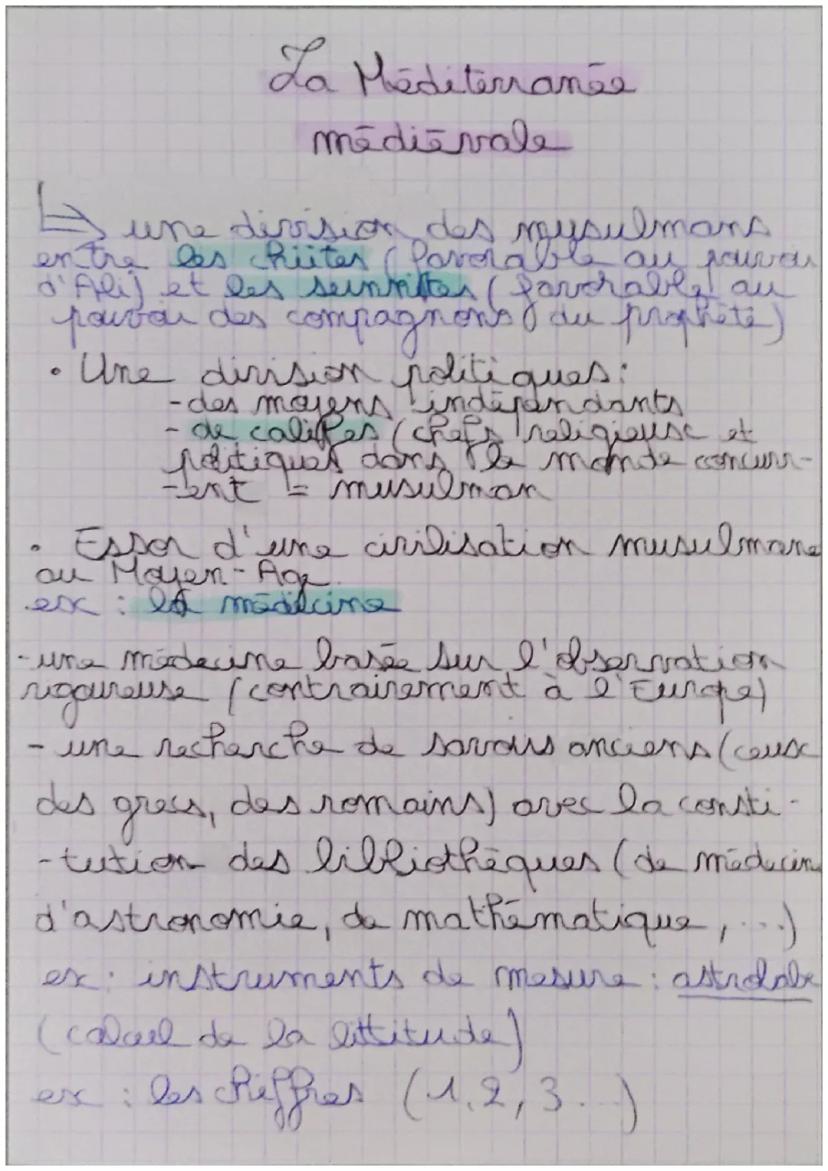 La Méditerranée
médiévale
une division des musulmans
entre les chiites (favorable au pouvoir
d'Ali) et les sunnites (favorable au
pouvoir des compagnons du prophète)
• Une division politiques:
-des moyens indépendants
- de califes (chefs religieuse et
politiques dans le monde concurr-
-ent = musulman
• Essor d'une civilisation musulmane
au Moyen-Age.
ex : la médecine
-une médecine basée sur l'observation
rigoureuse (contrairement à l'Europe)
- une recherche de savoirs anciens (ceux
des grecs, des romains) avec la consti-
-tution des bibliothèques (de médecin
d'astronomie, de mathématique, ...)
ex: instruments de mesure : astrolabe
(calcul de la littitude)
ex : les chiffres (1, 2, 3...)